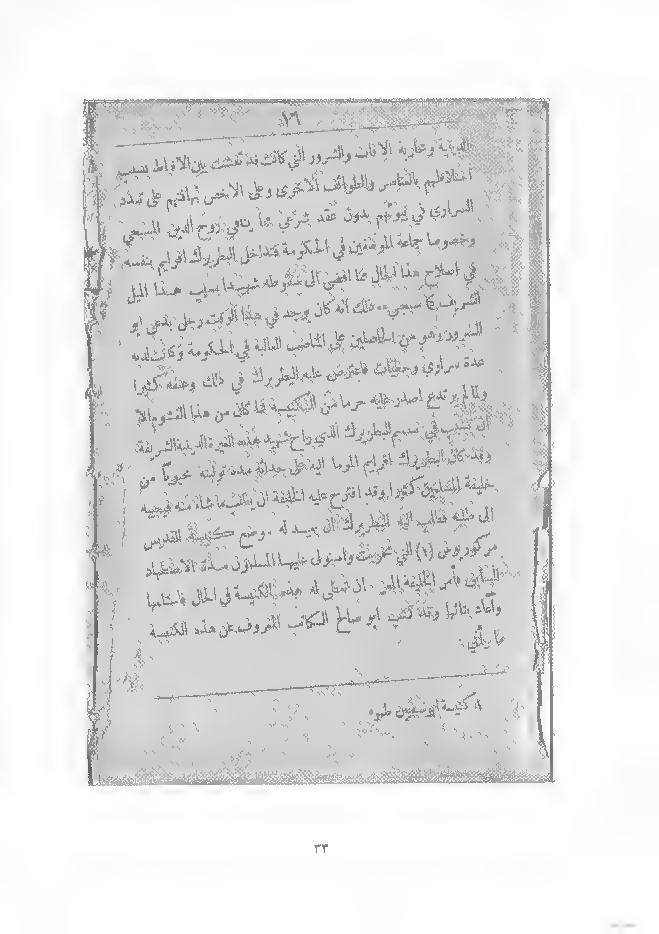 ١٦
الدينية ومحاربة الآفات والشرور التي كانت قد تفشت بين الاقباط بسبب
اختلاطهم بالعناصر والطوائف الاخرى وعلى الاخص تهافتهم على تعدد
السراري في بيوتهم بدون عقد شرعي مما ينافي روح الدين المسيحي
وخصوصا جماعة الموظفين في الحكومة فتداخل البطريرك افرايم بنفسه
في اصلاح هذا الحال مما افضى الى سقوطه شهيدا بسبب هذا الميل
الشريف كما سيجي. ذلك انه كان يوجد في هذا الوقت رجل يدعى ابو
السرور وهو من الحاصلين على المناصب العالية في الحكومة وكانت لديه
عدة سراري وحظيات فاعترض عليه البطريرك في ذلك وعنفه كثيرا
ولما لم يرتدع اصدر عليه حرما من الكنيسة فما كان من هذا الغشوم الا
ان تسبب في تسميم البطريرك الذي راح شهيد هذه الغيرة الدينية الشريفة.
وقد كان البطريرك افرايم الموما اليه على حداثة مدة توليته محبوبا من
خليفة المسلمين كثيرا وقد اقترح عليه الخليفة ان يطلب ما شاء منه فيجيبه
الى طلبه فطلب اليه البطريرك ان يعيد له موضع كنيسة القديس
مركوريوس (١) التي تخربت واستولى عليها المسلمون مدة الاضطهاد
السابق فأمر الخليفة المعز ان تعطى له هذه الكنيسة في الحال فاستلمها
وأعاد بنائها وقد كتب ابو صالح الكاتب المعروف عن هذه الكنيسة
ما يأتي:
١. كنيسة ابو سيفين
٣٣